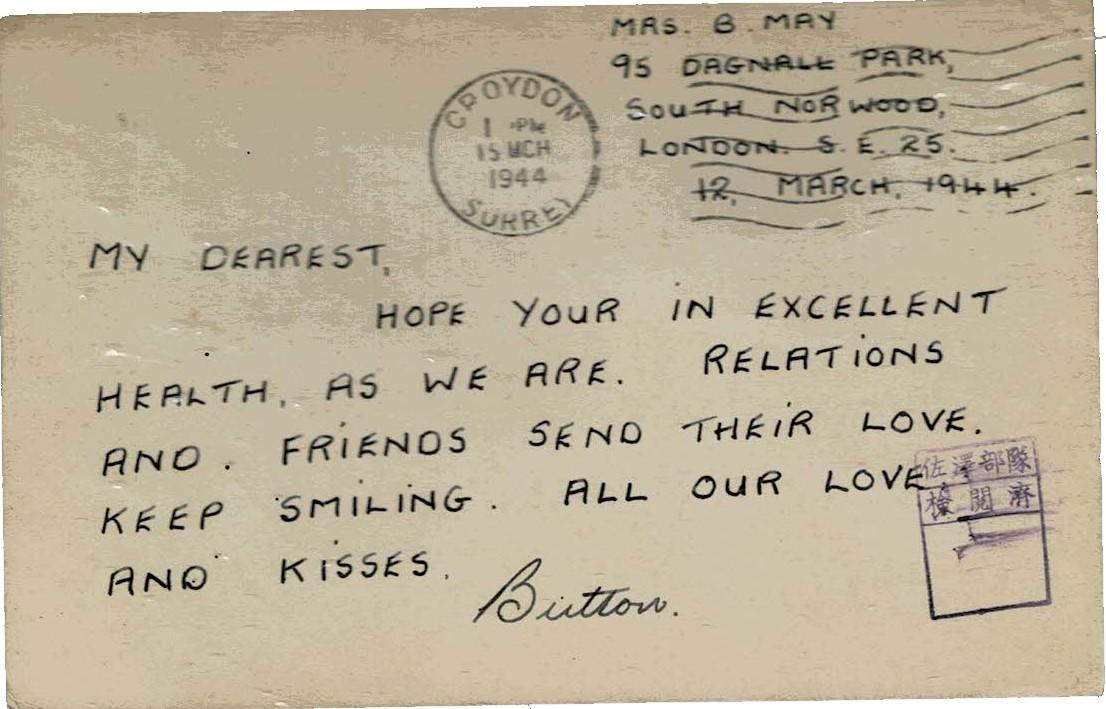 MRS. B. MAY
95 DAGNALL PARK,
SOUTH NORWOOD,
LONDON. S.E. 25.
12, MARCH, 1944.
CROYDON
1 PM
15 MCH
1944
SURREY
MY DEAREST,
HOPE YOUR IN EXCELLENT
HEALTH, AS WE ARE. RELATIONS
AND. FRIENDS SEND THEIR LOVE.
KEEP SMILING. ALL OUR LOVE
AND KISSES.
Button.
佐澤部隊
檢閲濟